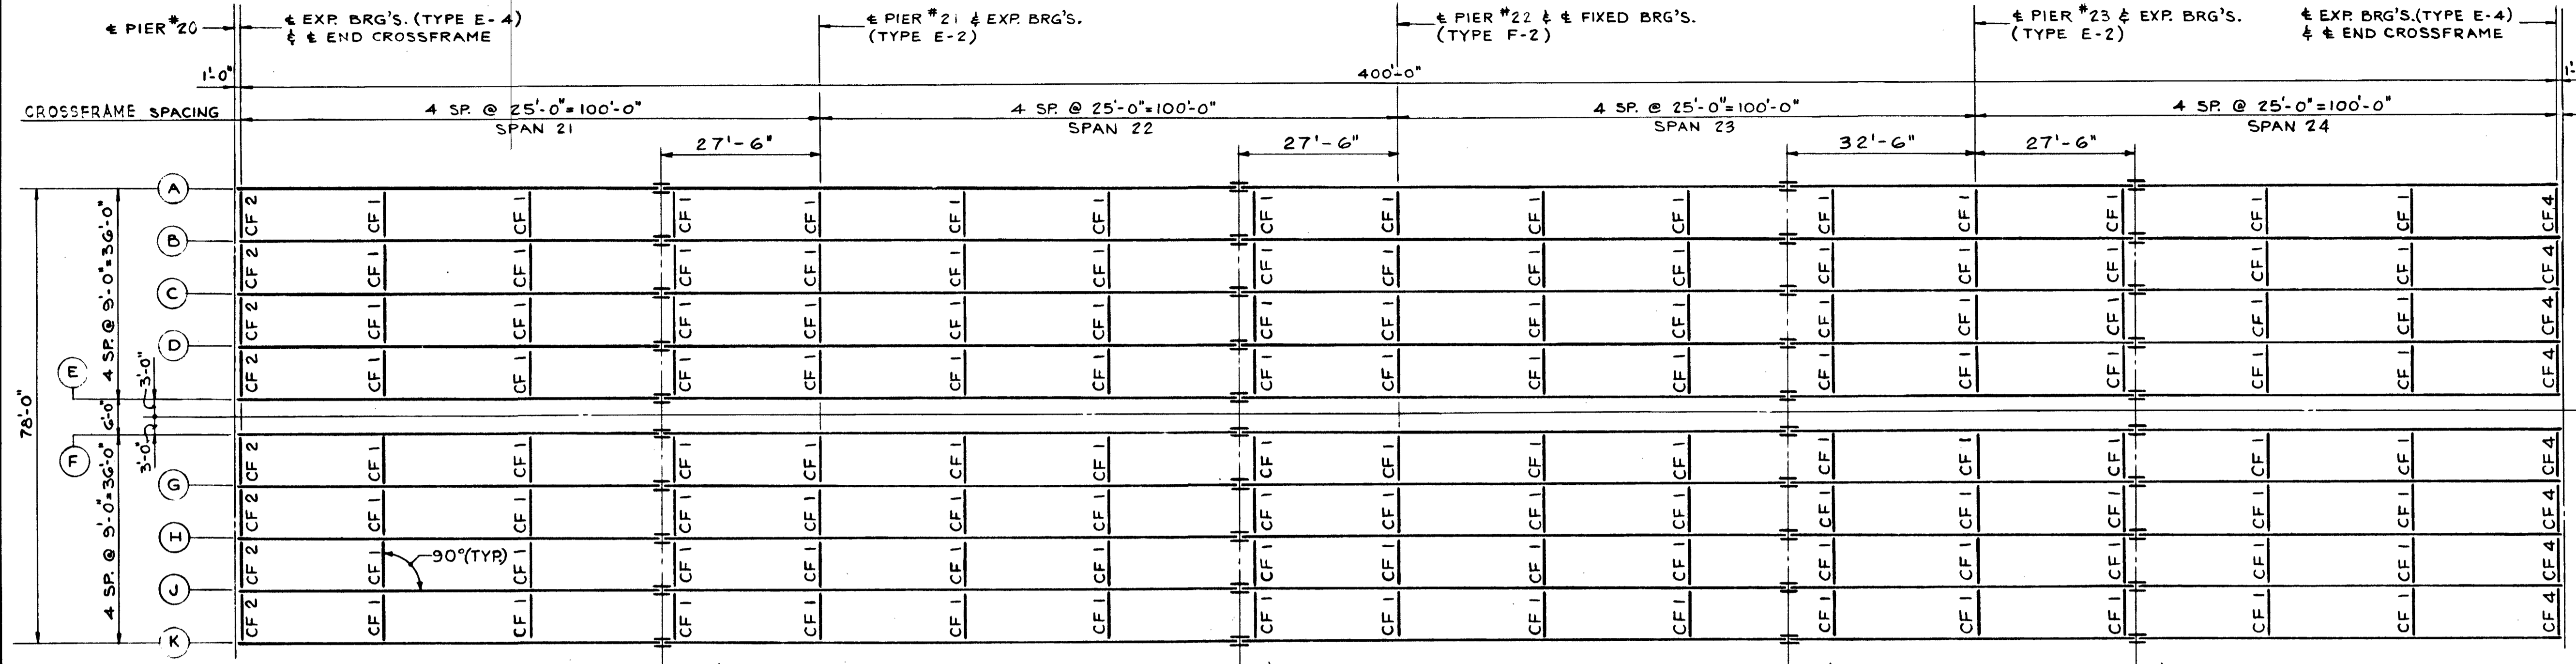 ℄ PIER #20
℄ EXP. BRG'S. (TYPE E-4)
& ℄ END CROSSFRAME
℄ PIER #21 & EXP. BRG'S.
(TYPE E-2)
℄ PIER #22 & ℄ FIXED BRG'S.
(TYPE F-2)
℄ PIER #23 & EXP. BRG'S.
(TYPE E-2)
℄ EXP. BRG'S.(TYPE E-4)
& ℄ END CROSSFRAME
1'-0" 400'-0" 1'-
CROSSFRAME SPACING 4 SP. @ 25'-0"=100'-0" 4 SP. @ 25'-0"=100'-0" 4 SP. @ 25'-0"=100'-0" 4 SP. @ 25'-0"=100'-0"
SPAN 21 SPAN 22 SPAN 23 SPAN 24
27'-6" 27'-6" 32'-6" 27'-6"
A
CF 2 CF 1 CF 1 CF 1 CF 1 CF 1 CF 1 CF 1 CF 1 CF 1 CF 1 CF 1 CF 1 CF 1 CF 1 CF 1 CF 4
B
CF 2 CF 1 CF 1 CF 1 CF 1 CF 1 CF 1 CF 1 CF 1 CF 1 CF 1 CF 1 CF 1 CF 1 CF 1 CF 1 CF 4
C
CF 2 CF 1 CF 1 CF 1 CF 1 CF 1 CF 1 CF 1 CF 1 CF 1 CF 1 CF 1 CF 1 CF 1 CF 1 CF 1 CF 4
D
CF 2 CF 1 CF 1 CF 1 CF 1 CF 1 CF 1 CF 1 CF 1 CF 1 CF 1 CF 1 CF 1 CF 1 CF 1 CF 1 CF 4
E
4 SP. @ 9'-0"=36'-0"
3'-0"
78'-0"
6'-0"
3'-0"
4 SP. @ 9'-0"=36'-0"
F
CF 2 CF 1 CF 1 CF 1 CF 1 CF 1 CF 1 CF 1 CF 1 CF 1 CF 1 CF 1 CF 1 CF 1 CF 1 CF 1 CF 4
G
CF 2 CF 1 CF 1 CF 1 CF 1 CF 1 CF 1 CF 1 CF 1 CF 1 CF 1 CF 1 CF 1 CF 1 CF 1 CF 1 CF 4
H
CF 2 CF 1 90°(TYP.) CF 1 CF 1 CF 1 CF 1 CF 1 CF 1 CF 1 CF 1 CF 1 CF 1 CF 1 CF 1 CF 1 CF 1 CF 4
J
CF 2 CF 1 CF 1 CF 1 CF 1 CF 1 CF 1 CF 1 CF 1 CF 1 CF 1 CF 1 CF 1 CF 1 CF 1 CF 1 CF 4
K